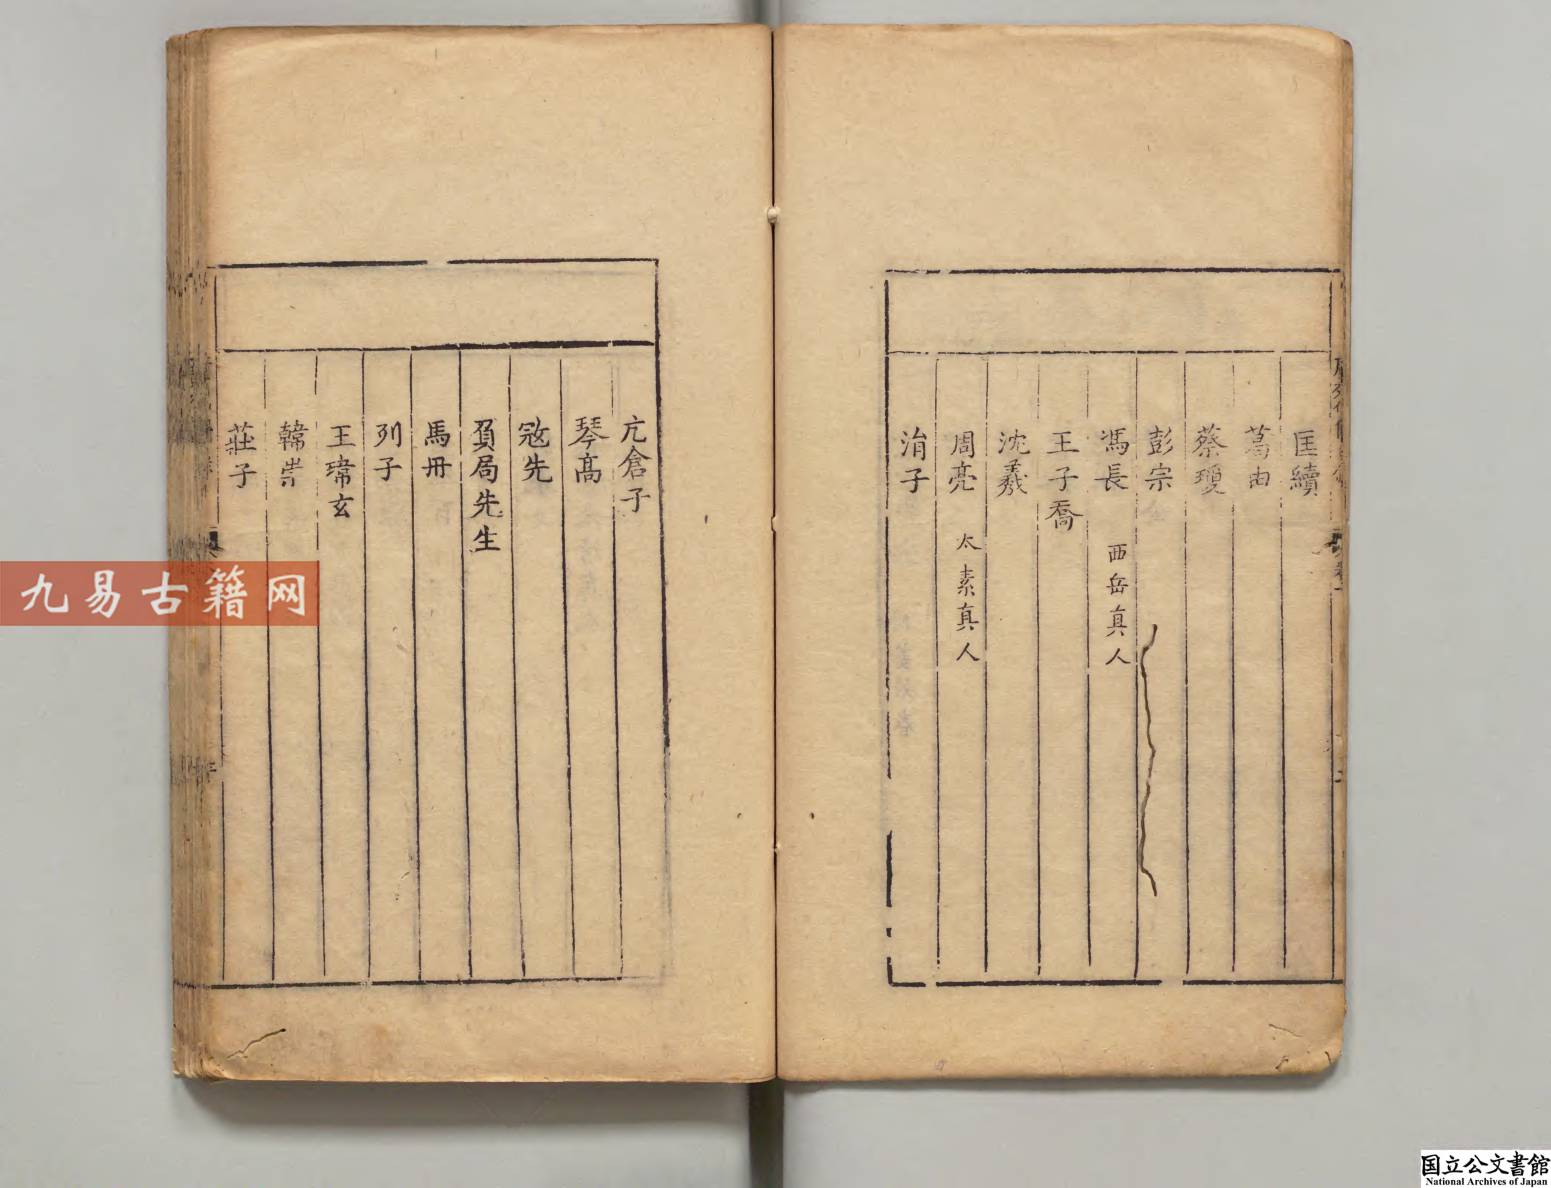 匡續
葛由
蔡瓊
彭宗
馮長 西岳真人
王子喬
沈羲
周亮 太素真人
涓子
亢倉子
琴高
寇先
負局先生
馬丹
列子
王瑋玄
韓崇
莊子
九易古籍网
国立公文書館
National Archives of Japan